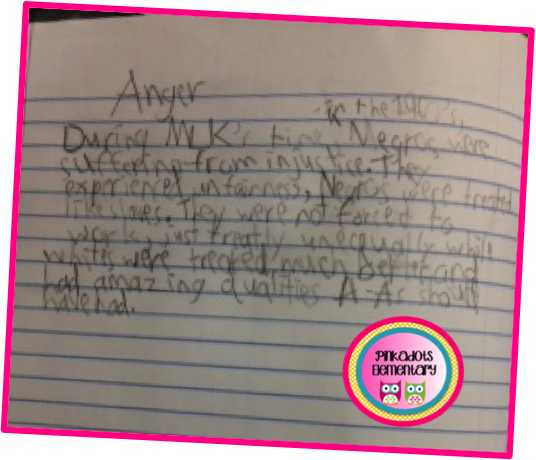 Anger
-in the 1960's,
During MLK's time, Negros were
suffering from injustice. They
experienced unfairness, Negros were treated
like slaves. They were not forced to
work, just treatly unequally while
whites were treated much better and
had amazing qualities A-As should
have had.
Pinkadots
Elementary